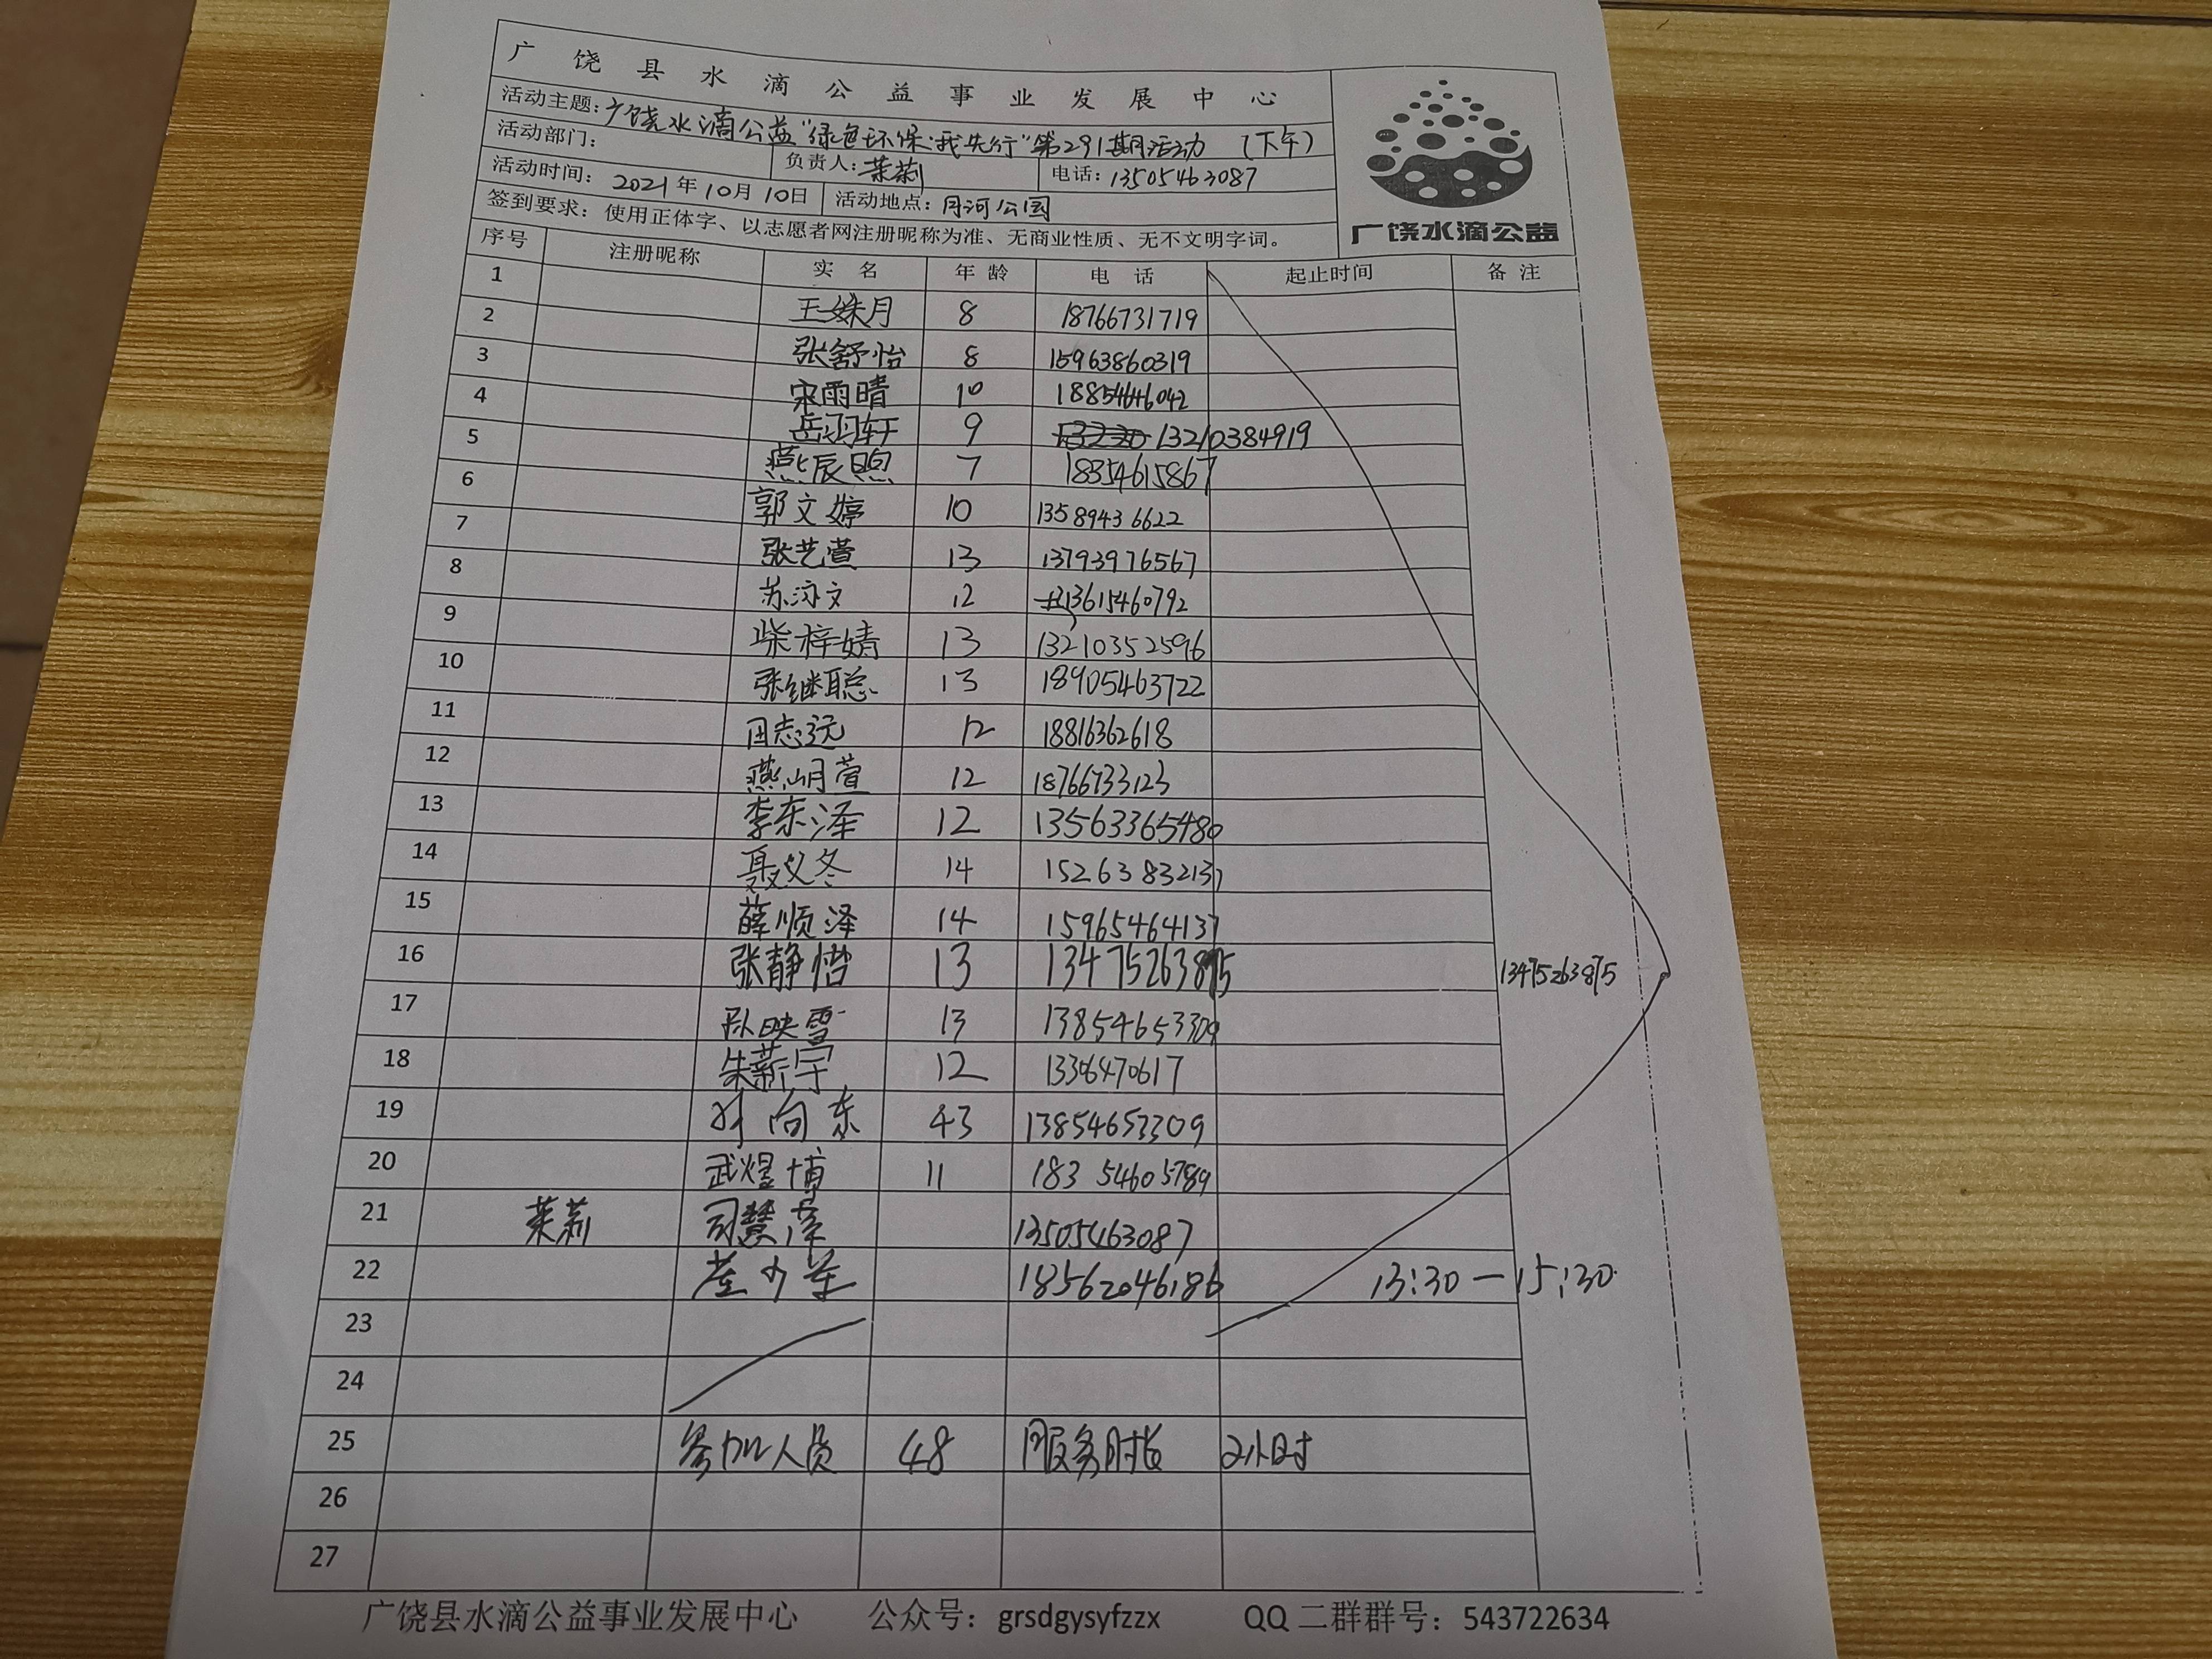 广饶县水滴公益事业发展中心
活动主题：广饶水滴公益"绿色环保·我先行"第291期活动 （下午）
活动部门： 负责人：茉莉 电话：13505463087
活动时间：2021年10月10日 活动地点：月河公园
签到要求：使用正体字、以志愿者网注册昵称为准、无商业性质、无不文明字词。
广饶水滴公益
序号 注册昵称 实名 年龄 电话 起止时间 备注
1 王姝月 8 18766731719
2 张舒怡 8 15963860319
3 宋雨晴 10 18854646042
4 岳羽轩 9 13210384919
5 燕辰煦 7 18354615867
6 郭文婷 10 13589436622
7 张艺萱 13 13793976567
8 苏 文 12 13615460792
9 柴梓婧 13 13210352596
10 张继聪 13 18905463722
11 田志远 12 18816362618
12 燕明萱 12 18766733123
13 李东泽 12 13563365480
14 聂义冬 14 15263832137
15 薛顺泽 14 15965464137
16 张静怡 13 13475263875 13475263875
17 映雪 13 13854653309
18 朱薪宇 12 1336470617
19 向东 43 13854653309
20 武煜博 11 18354605789
21 茉莉 司慧萍 13505463087
22 18562046186 13:30—15:30
23
24
25 参加人员 48 服务时长 2小时
26
27
广饶县水滴公益事业发展中心 公众号：grsdgysyfzzx QQ二群群号：543722634